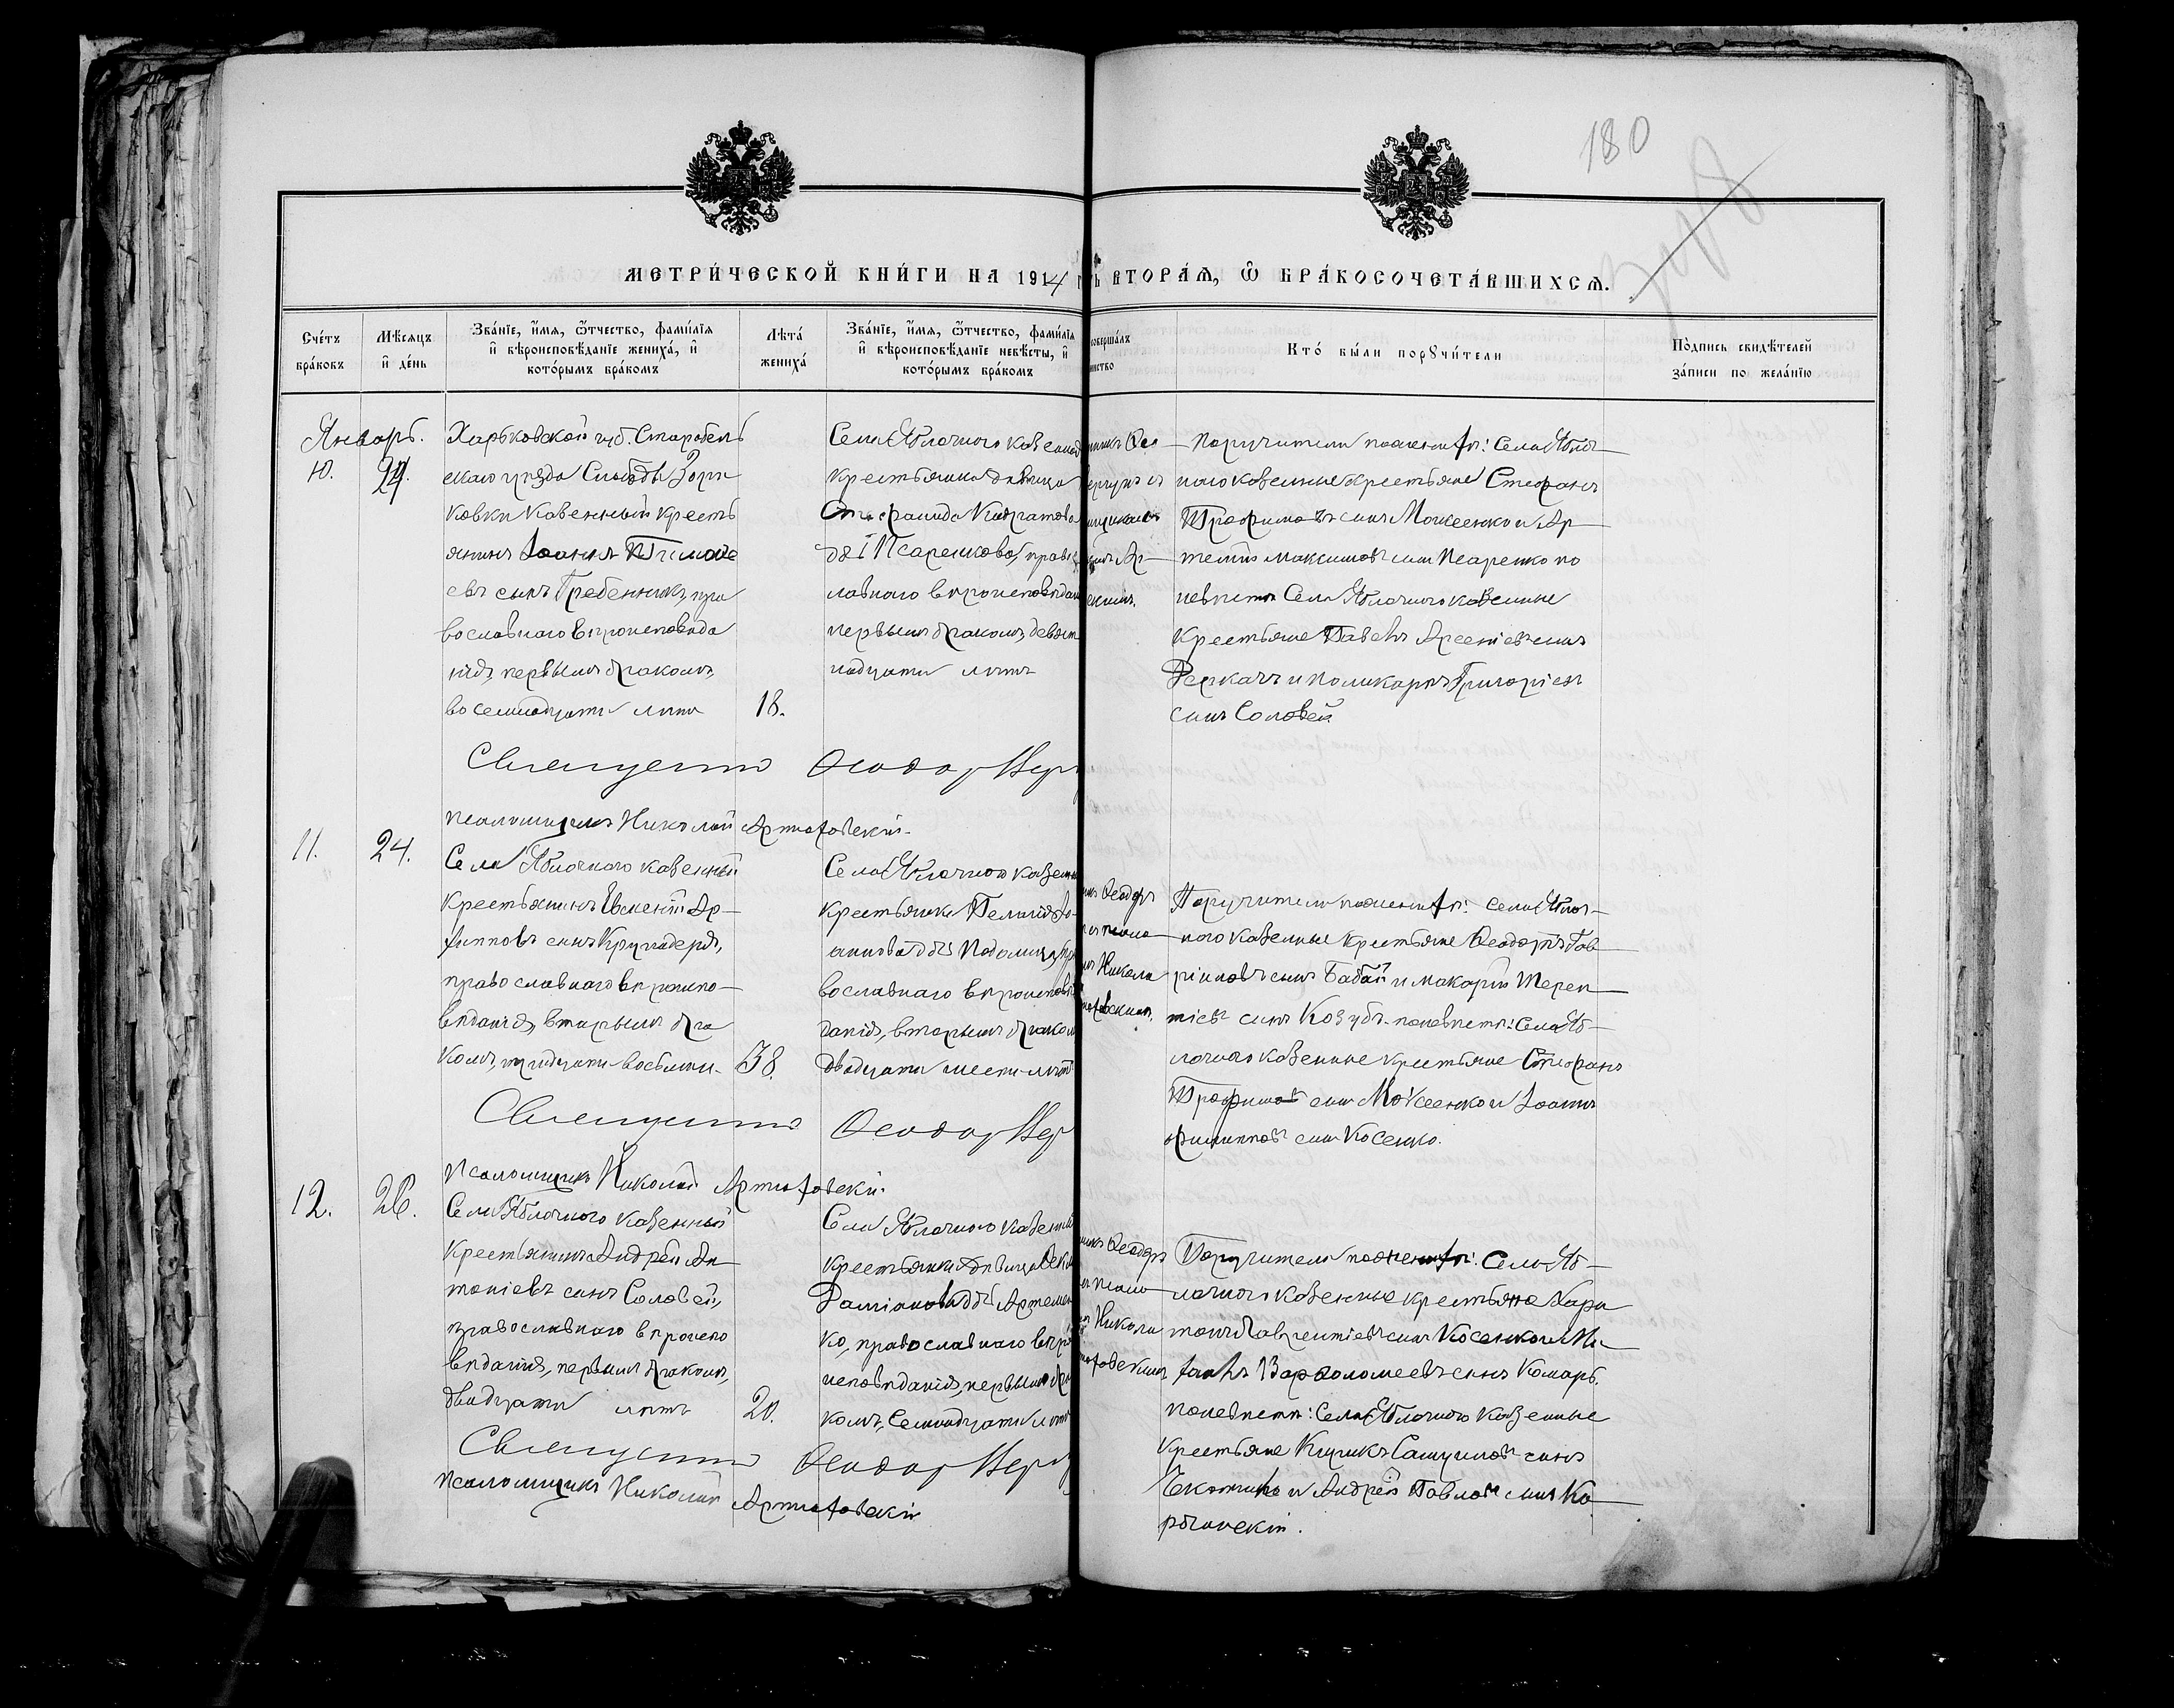 180
МЕТРИ́ЧЕСКОЙ КНИ́ГИ НА 1914
ВТОРА́Ѧ, Ѡ БРА́КОСОЧЕТА́ВШИХСѦ.
Сче́тъ бра́ковъ
Мѣ́сяцъ и҆ де́нь
Зва́нїе, и҆́мя, ѻ҆́тчество, фами́лїя
и҆ вѣроисповѣ́данїе жениха̀, и҆
кото́рымъ бра́комъ
Лѣта̀ жениха̀
Зва́нїе, и҆́мя, ѻ҆́тчество, фами́лїя
и҆ вѣроисповѣ́данїе невѣ́сты, и҆
кото́рымъ бра́комъ
Кто̀ бы́ли порꙋчи́тели
По́дпись свидѣ́телей
за́писи по жела́нїю
Январь.
10.
24.
Харьковской губ. Старобель
скаго уѣзда Слободы Зори
ковки казенный кресть
янинъ Іоаннъ Тимоѳе
евъ сынъ Гребенникъ, пра
вославнаго вѣроисповѣда
нія, первымъ бракомъ,
восемнадцати лѣтъ
18.
Села Яблочнаго казенная
крестьянка дѣвица
Стефанида Кондратова
дч. Псаренкова, правос
лавнаго вѣроисповѣдан
первымъ бракомъ, девят
надцати лѣтъ
Поручители по женихѣ: Села Яблоч
наго казенные крестьяне Стефанъ
Трофимовъ сынъ Моисеенко и Ар
темій Максимовъ сынъ Псаренко по
невѣстѣ Села Яблочнаго казенные
крестьяне Павелъ Арсеніевъ сынъ
Деркачъ и Поликарпъ Григоріевъ
сынъ Соловей
Священникъ Ѳеодоръ
Псаломщикъ Николай Артюховскій.
11.
24.
Села Яблочнаго казенный
крестьянинъ Евсеній Ар
хипповъ сынъ Круподеря,
православнаго вѣроиспо
вѣданія, вторымъ бра
комъ, тридцати восьми.
38.
Села Яблочнаго казенн
крестьянка Пелагія Іо
аннова дч. Подолица, пра
вославнаго вѣроисповѣ
данія, вторымъ бракомъ
двадцати шести лѣтъ
Ѳеодоръ
псало
Никола
Поручители по женихѣ: Села Яблоч
наго казенные крестьяне Ѳеодоръ Гав
ріиловъ сынъ Бабай и Макарій Терен
тіевъ сынъ Козубъ. по невѣстѣ: Села Яб
лочнаго казенные крестьяне Стефанъ
Трофимовъ сынъ Моисеенко и Іоаннъ
Филипповъ сынъ Косенко.
Священникъ Ѳеодоръ
Псаломщикъ Николай Артюховскій.
12.
26.
Села Яблочнаго казенный
крестьянинъ Андрей Ан
тоніевъ сынъ Соловей,
православнаго вѣроиспо
вѣданія, первымъ бракомъ,
двадцати лѣтъ
20.
Села Яблочнаго казенная
крестьянка дѣвица
Даміанова дч. Артемен
ко, православнаго вѣро
исповѣданія, первымъ бра
комъ, семнадцати лѣтъ
Ѳеодоръ
псало
Никола
Поручители по женихѣ: Села Яб
лочнаго казенные крестьяне Хари
тонъ Лаврентіевъ сынъ Косенко и Ми
хаилъ Варѳоломеевъ сынъ Комарь.
по невѣстѣ: Села Яблочнаго казенные
крестьяне Кирикъ Самуиловъ сынъ
и Андрей Павловъ сынъ Ко
рбанскій.
Священникъ Ѳеодоръ
Псаломщикъ Николай Артюховскій